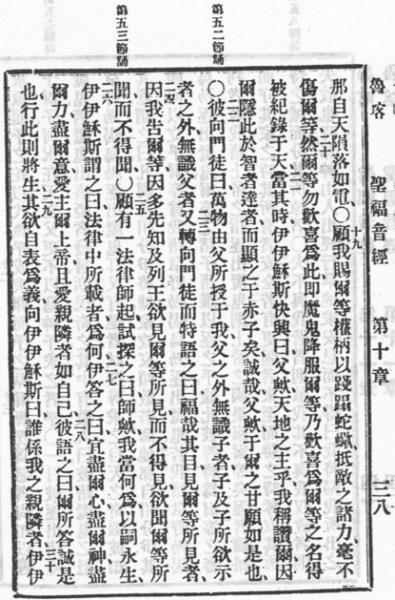 魯客 聖福音經 第十章 三八
十九
那自天隕落如電〇顧我賜爾等權柄以踐蹋蛇蠍抵敵之諸力毫不
二十
傷爾等然爾等勿歡喜爲此即魔鬼降服爾等乃歡喜爲爾等之名得
二一
被紀錄于天當其時伊伊穌斯快興曰父歟天地之主乎我稱讚爾因
爾隱此於智者達者而顯之于赤子矣誠哉父歟于爾之甘願如是也
第五二節誦
二二
〇彼向門徒曰萬物由父所授于我父之外無識子者子及子所欲示
二三
者之外無識父者又轉向門徒而特語之曰福哉其目見爾等所見者
二四
因我告爾等因多先知及列王欲見爾等所見而不得見欲聞爾等所
第五三節誦
二五
聞而不得聞〇顧有一法律師起試探之曰師歟我當何爲以嗣永生
二六 二七
伊伊穌斯謂之曰法律中所載者爲何伊答之曰宜盡爾心盡爾神盡
二八
爾力盡爾意愛主爾上帝且愛親隣者如自己彼語之曰爾所答誠是
二九 三十
也行此則將生其欲自表爲義向伊伊穌斯曰誰係我之親隣者伊伊